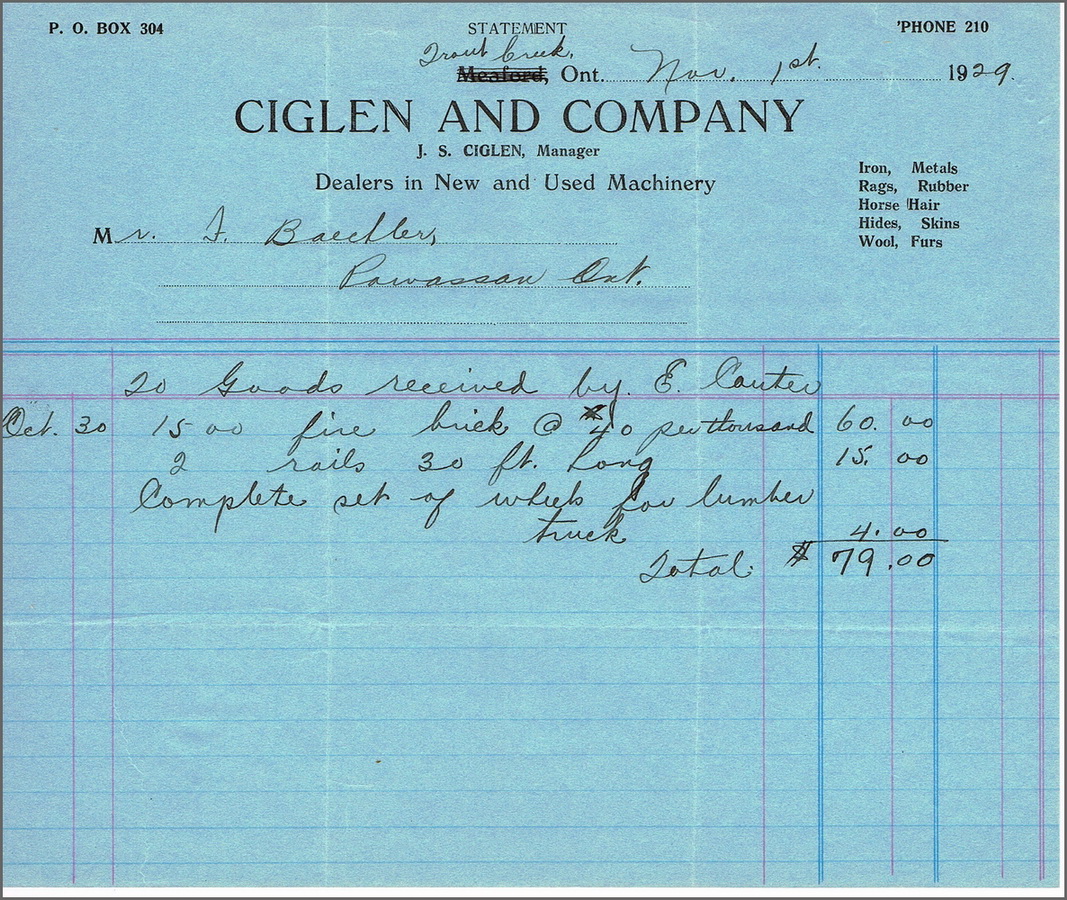 P. O. BOX 304
STATEMENT
'PHONE 210
Trout Creek,
Meaford, Ont. Nov. 1st. 1929.
CIGLEN AND COMPANY
J. S. CIGLEN, Manager
Dealers in New and Used Machinery
Iron, Metals
Rags, Rubber
Horse Hair
Hides, Skins
Wool, Furs
Mr. F. Baechler,
Powassan Ont.
To Goods received by E. Canter
Oct. 30 1500 fire brick @ 40 per thousand 60. 00
2 rails 30 ft. long 15. 00
Complete set of wheels for lumber
truck 4. 00
Total: $ 79.00